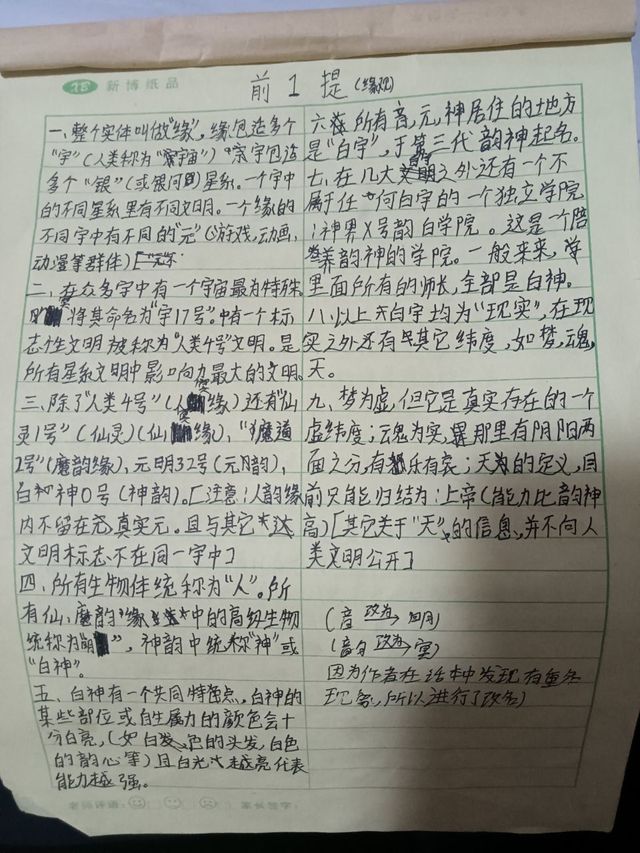 新博纸品
前1提(缘观)
一、整个实体叫做"缘",缘包达多个
"宇"(人类称为"宇宙")宇包达
多个"银"(或银河)星系。一个宇中
的不同星系里有不同文明。一个缘的
不同宇中有不同的"元"(游戏,动画,
动漫等群体)
二、在众多宇中有一个宇宙最为特殊
将其命名为"宇17号"中有一个标
志性文明被称为"人类4号"文明。是
所有星系文明中影响力最大的文明。
三、除了"人类4号"(人缘)还有"仙
灵1号"(仙灵)(仙缘),"魔道
2号"(魔韵缘),元明32号(元韵),
白神0号(神韵)。[注意:人韵缘
内不留在真实元。且与其它
文明标志不在同一宇中]
四、所有生物体统称为"人"。所
有仙,魔韵缘中的高级生物
统称为"",神韵中统称"神"或
"白神"。
五、白神有一个共同特点,白神的
某些部位或自生属力的颜色会十
分白亮,(如白发色的头发,白色
的韵心等)且白光越亮代表
能力越强。
六、所有音,元,神居住的地方
是"白宇",于第三代韵神起名。
七、在几大文明之外还有一个不
属于任何白宇的一个独立学院
:神界X号韵白学院。这是一个陪
养韵神的学院。一般来来,学
里面所有的师长,全部是白神。
八、以上白宇均为"现实",在现
实之外还有其它纬度,如梦,魂,
天。
九、梦为虚,但它是真实存在的一个
虚纬度;魂为实,那里有阴阳两
面之分,有乐有哀;天的定义,目
前只能归结为:上帝(能力比韵神
高)[其它关于"天"的信息,并不向人
类文明公开]
(音 改为→ 明)
(韵 改为→ 冥)
因为作者在话本中发现有重名
现象,所以进行了改名)
老师评语: 家长签字: